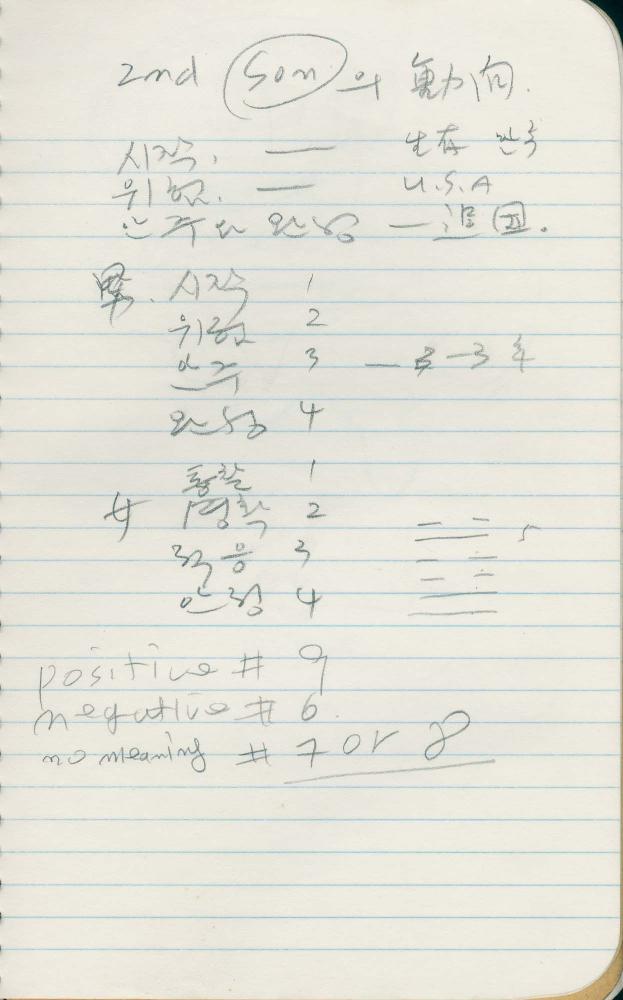 2nd Son의 動向.
시작. — 生存 한국
위험. — U.S.A
안주와 완성 — 追
男. 시작 1
위험 2
안주 3 — 3 年
완성 4
통찰 1
女 명확 2
적응 3 5
안정 4
positive # 9
negative # 6
no meaning # 7 or 8